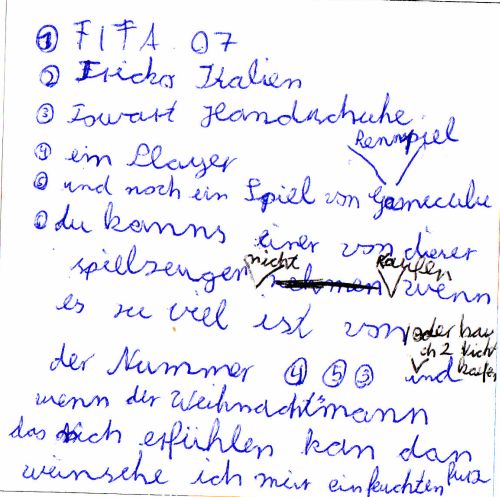 ① FIFA 07
② Tricko Italien
③ Towart Handschuhe
④ ein Player
Rennspiel
⑤ und noch ein Spiel von Gamecube
⑥ du kanns einer von dieser
nicht kaufen
spielzeugen nehmen wenn
es zu viel ist von oder hau
ich 2 nicht
der Nummer ④ ⑤ ③ und kaufen
wenn der Weihnachtsmann
das nich erfühlen kan dan
wünsche ich mir ein feuchten furz